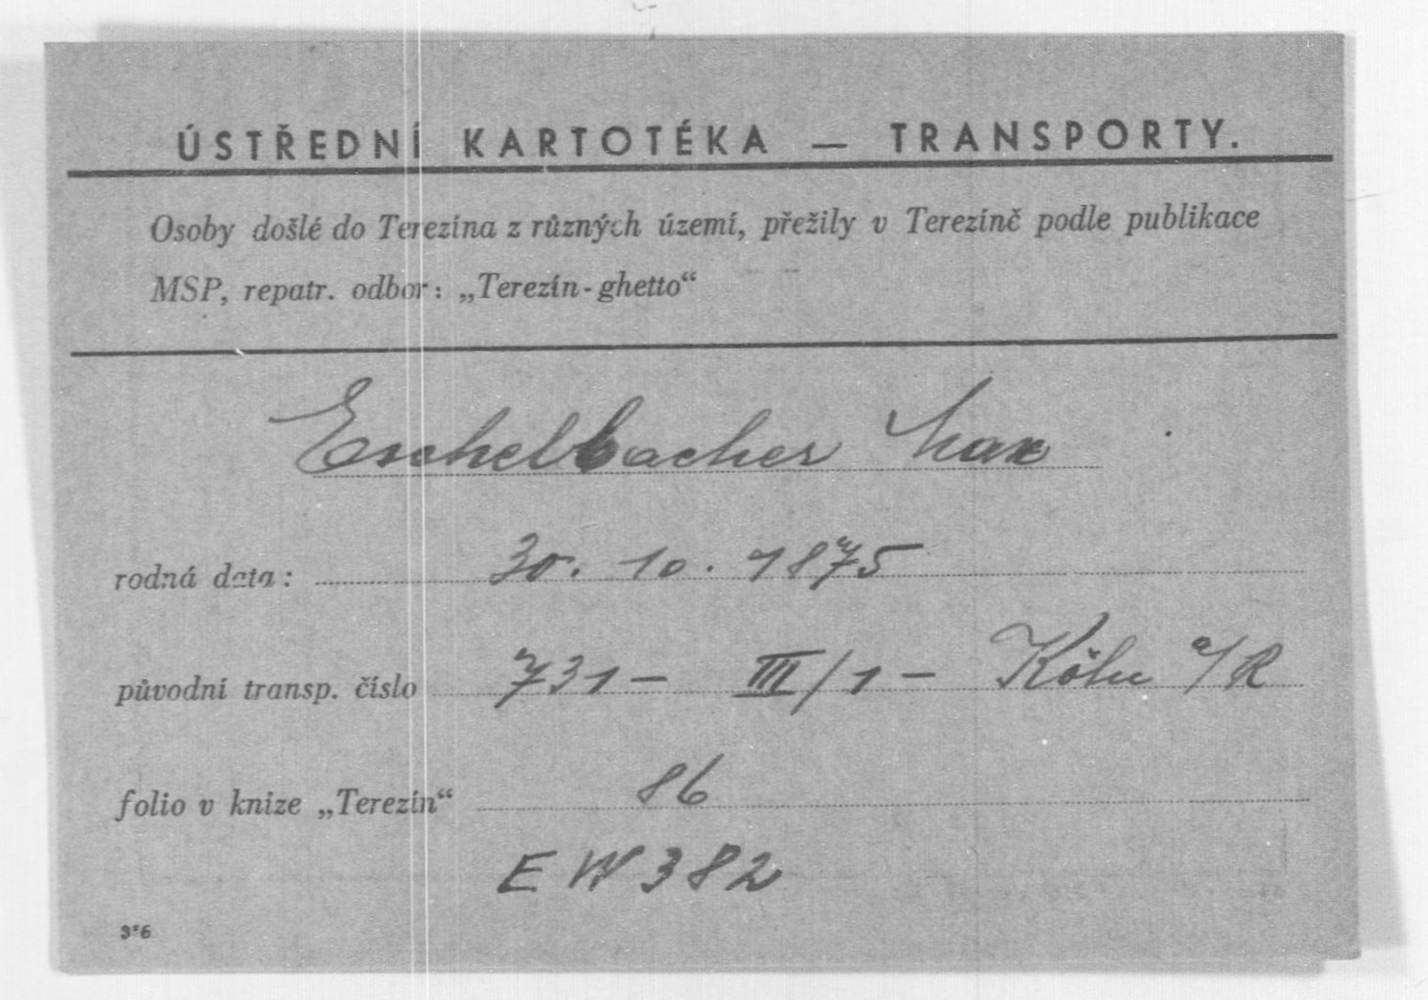 ÚSTŘEDNÍ KARTOTÉKA — TRANSPORTY.
Osoby došlé do Terezína z různých území, přežily v Terezíně podle publikace
MSP, repatr. odbor: „Terezín-ghetto“
Eschelbacher Max
rodná data: 30. 10. 1875
původní transp. číslo 731 – III/1 – Köln a/R
folio v knize „Terezín“ 86
EW 382